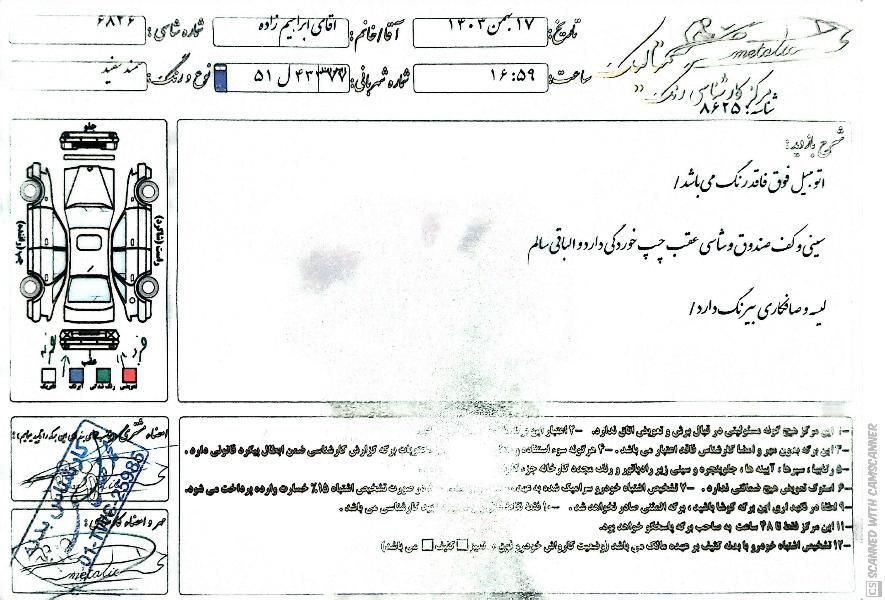 تاریخ: ۱۷ بهمن ۱۴۰۳ آقا/خانم: آقای ابراهیم زاده شماره شاسی: ۶۸۲۶
ساعت: ۱۶:۵۹ شماره شهربانی: ۵۱ ل ۴۳۳۷۷ نوع و رنگ: سمند سفید
metalic
متالیک
مرکز کارشناسی رنگ
شناسه: ۸۶۲۵
شرح بازدید:
اتومبیل فوق فاقد رنگ می باشد/
سینی و کف صندوق و شاسی عقب چپ خوردگی دارد و الباقی سالم
لیسه و صافکاری بیرنگ دارد/
جلو
راست (شاگرد)
چپ (راننده)
عقب
امضاء مشتری
مهر و امضاء
metalic
کارشناس بدنه
01-TWIC-25986
۱- این مرکز هیچ گونه مسئولیتی در قبال برش و تعویض اتاق ندارد. ۲- اعتبار این
۳- این برگه بدون مهر و امضا کارشناس فاقد اعتبار می باشد. ۴- هرگونه سوء استفاده و برگه گزارش کارشناسی ضمن ابطال پیگرد قانونی دارد.
۵- رکابها، سپرها، آیینه ها، جلوپنجره و سینی زیر رادیاتور و رنگ مجدد کارخانه جزء
۶- استوک تعویض هیچ ضمانتی ندارد. ۷- تشخیص اشتباه خودرو سرامیک شده به عهده در صورت تشخیص اشتباه ۱۵٪ خسارت وارده پرداخت می شود.
۹- لطفا در نگهداری این برگه کوشا باشید، برگه المثنی صادر نخواهد شد. ۱۰- فقط کارشناسی می باشد.
۱۱- این مرکز فقط تا ۴۸ ساعت به صاحب برگه پاسخگو خواهد بود.
۱۲- تشخیص اشتباه خودرو با بدنه کثیف بر عهده مالک می باشد (وضعیت کارواش خودرو فوق: تمیز □ کثیف □ می باشد)
SCANNED WITH CAMSCANNER